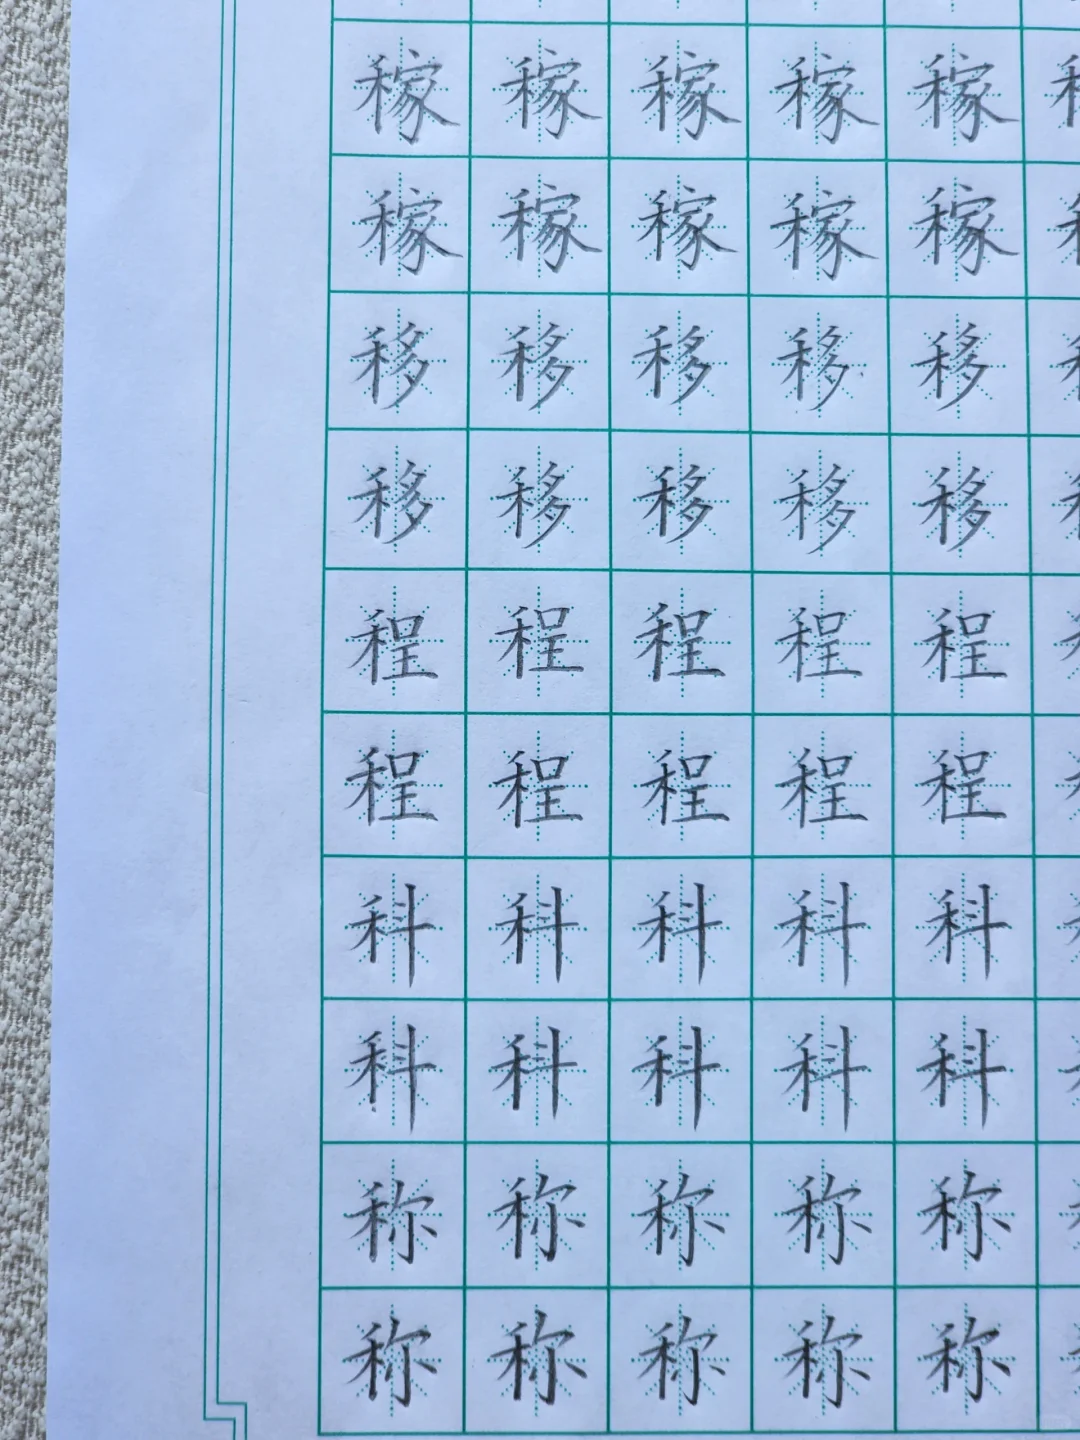 稼稼稼稼稼
稼稼稼稼稼
移移移移移
移移移移移
程程程程程
程程程程程
科科科科科
科科科科科
称称称称称
称称称称称